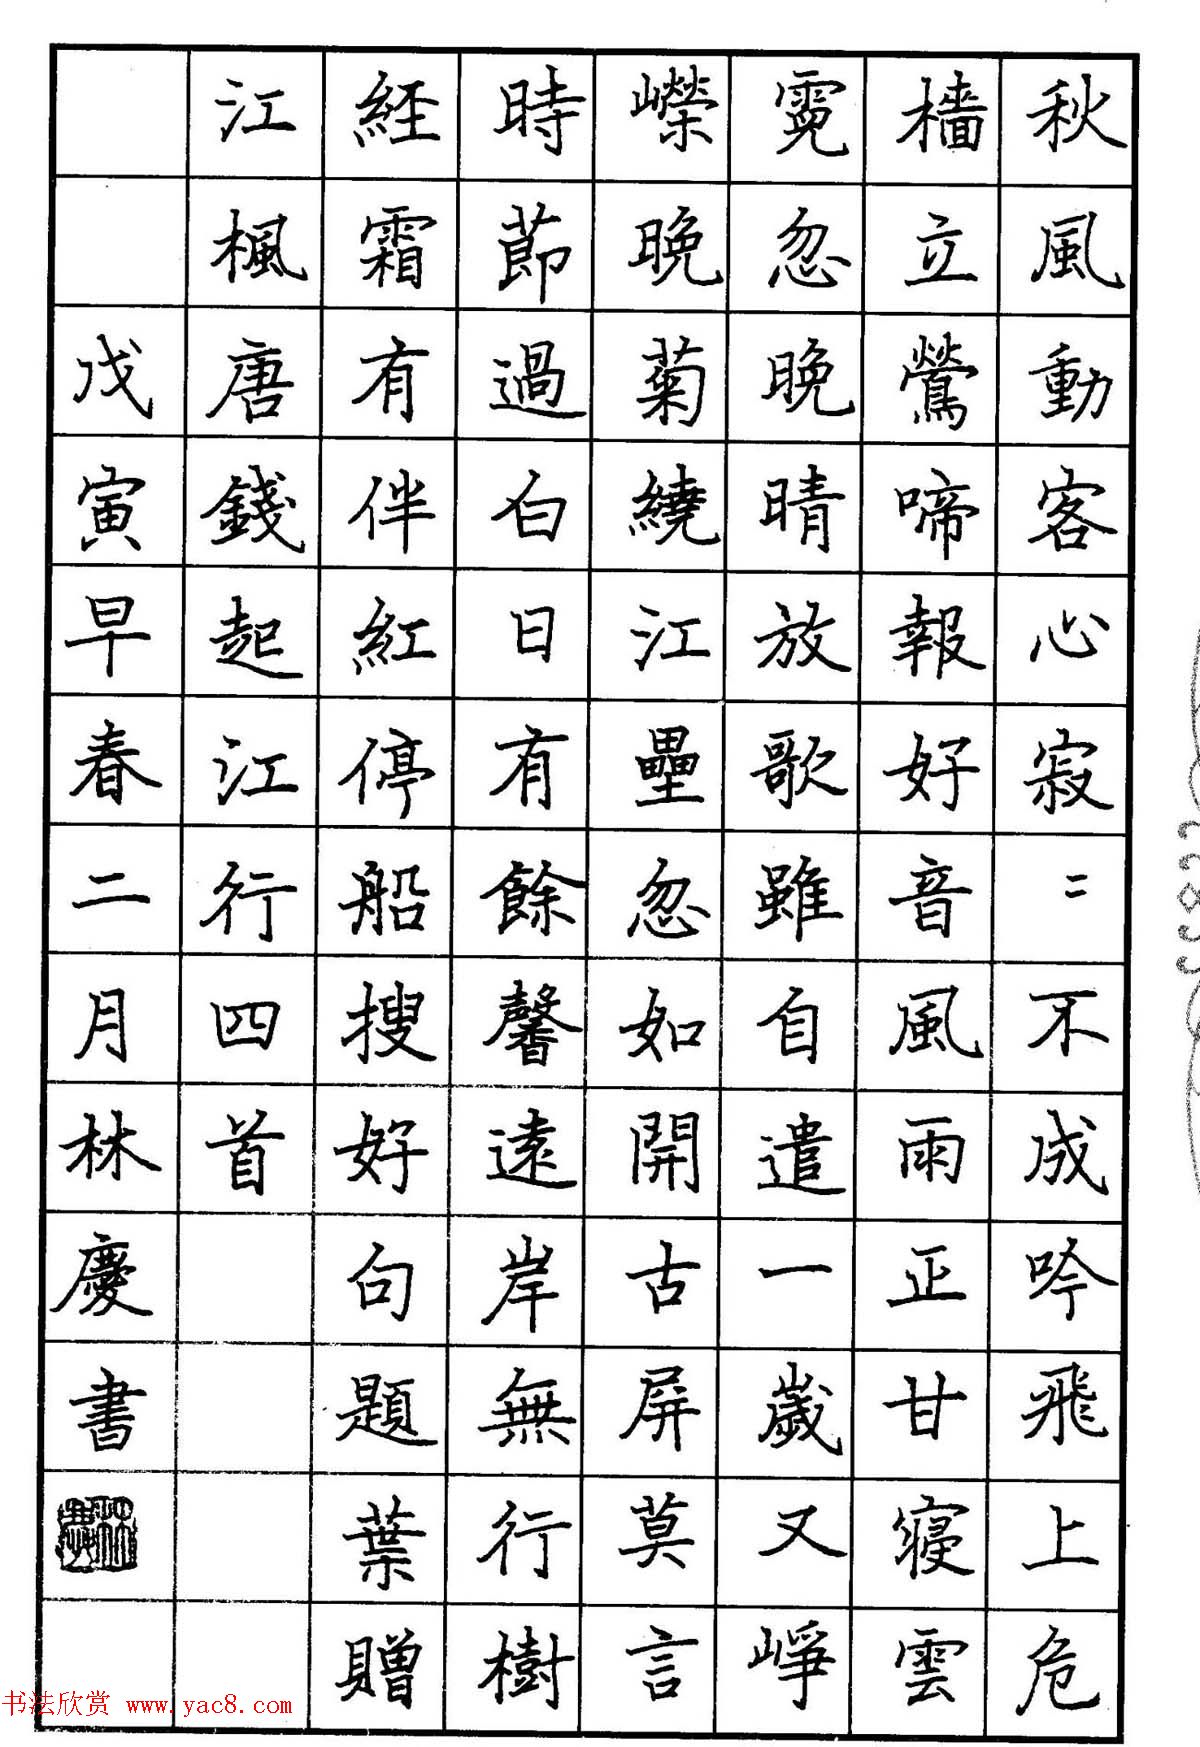 秋風動客心寂〻不成吟飛上危
檣立鶯啼報好音風雨正甘寢雲
霓忽晚晴放歌雖自遣一歲又崢
嶸晚菊繞江壘忽如開古屏莫言
時節過白日有餘馨遠岸無行樹
経霜有伴紅停船搜好句題葉贈
江楓唐錢起江行四首
戊寅早春二月林慶書
书法欣赏 www.yac8.com